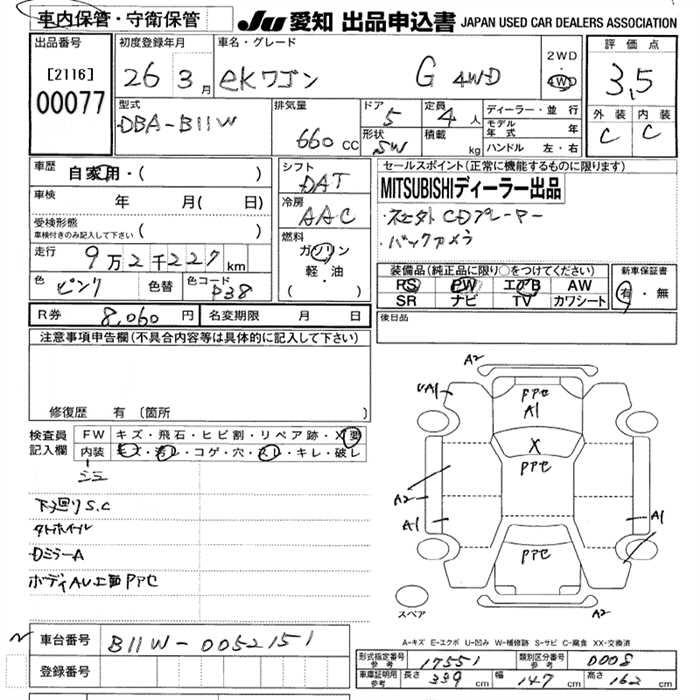 車内保管・守衛保管
JU 愛知 出品申込書 JAPAN USED CAR DEALERS ASSOCIATION
出品番号
[2116]
00077
初度登録年月
26 3月
車名・グレード
eKワゴン G 4WD
2WD
4WD
評価点
3,5
外装 内装
C C
型式
DBA-B11W
排気量
660 cc
ドア
5
形状
SW
定員
4 人
積載
kg
ディーラー・並行
モデル年式 年
ハンドル 左・右
車歴
自家用・( )
車検
年 月( 日)
受検形態
車検付きのみ記入して下さい ( )
走行
9万2千227km
色
ピンク
色替
色コード
P38
シフト
DAT
冷房
AAC
燃料
ガソリン
軽・油
( )
セールスポイント(正常に機能するものに限ります)
MITSUBISHIディーラー出品
・社外CDプレーヤー
・バックカメラ
装備品(純正品に限り○をつけてください)
PS PW エアB AW
SR ナビ TV カワシート
新車保証書
有・無
R券 8,060 円
名変期限 月 日
後日品
注意事項申告欄(不具合内容等は具体的に記入して下さい)
修復歴 有 (箇所 )
検査員記入欄
FW キズ・飛石・ヒビ割・リペア跡・X要
内装 キズ・汚レ・コゲ・穴・スレ・キレ・破レ
下廻りS.C
タトホイール
DミラーA
A2
A1
PPセ
A1
X
PPセ
A2
A1
A1
PPセ
A2
スペア
A-キズ E-エクボ U-凹み W-補修跡 S-サビ C-腐食 XX-交換済
車台番号
B11W-0052151
登録番号
形式指定番号
参考
17551
類別区分番号
参考
0008
車庫証明用
参考
長さ 339 cm
幅 147 cm
高さ 162 cm